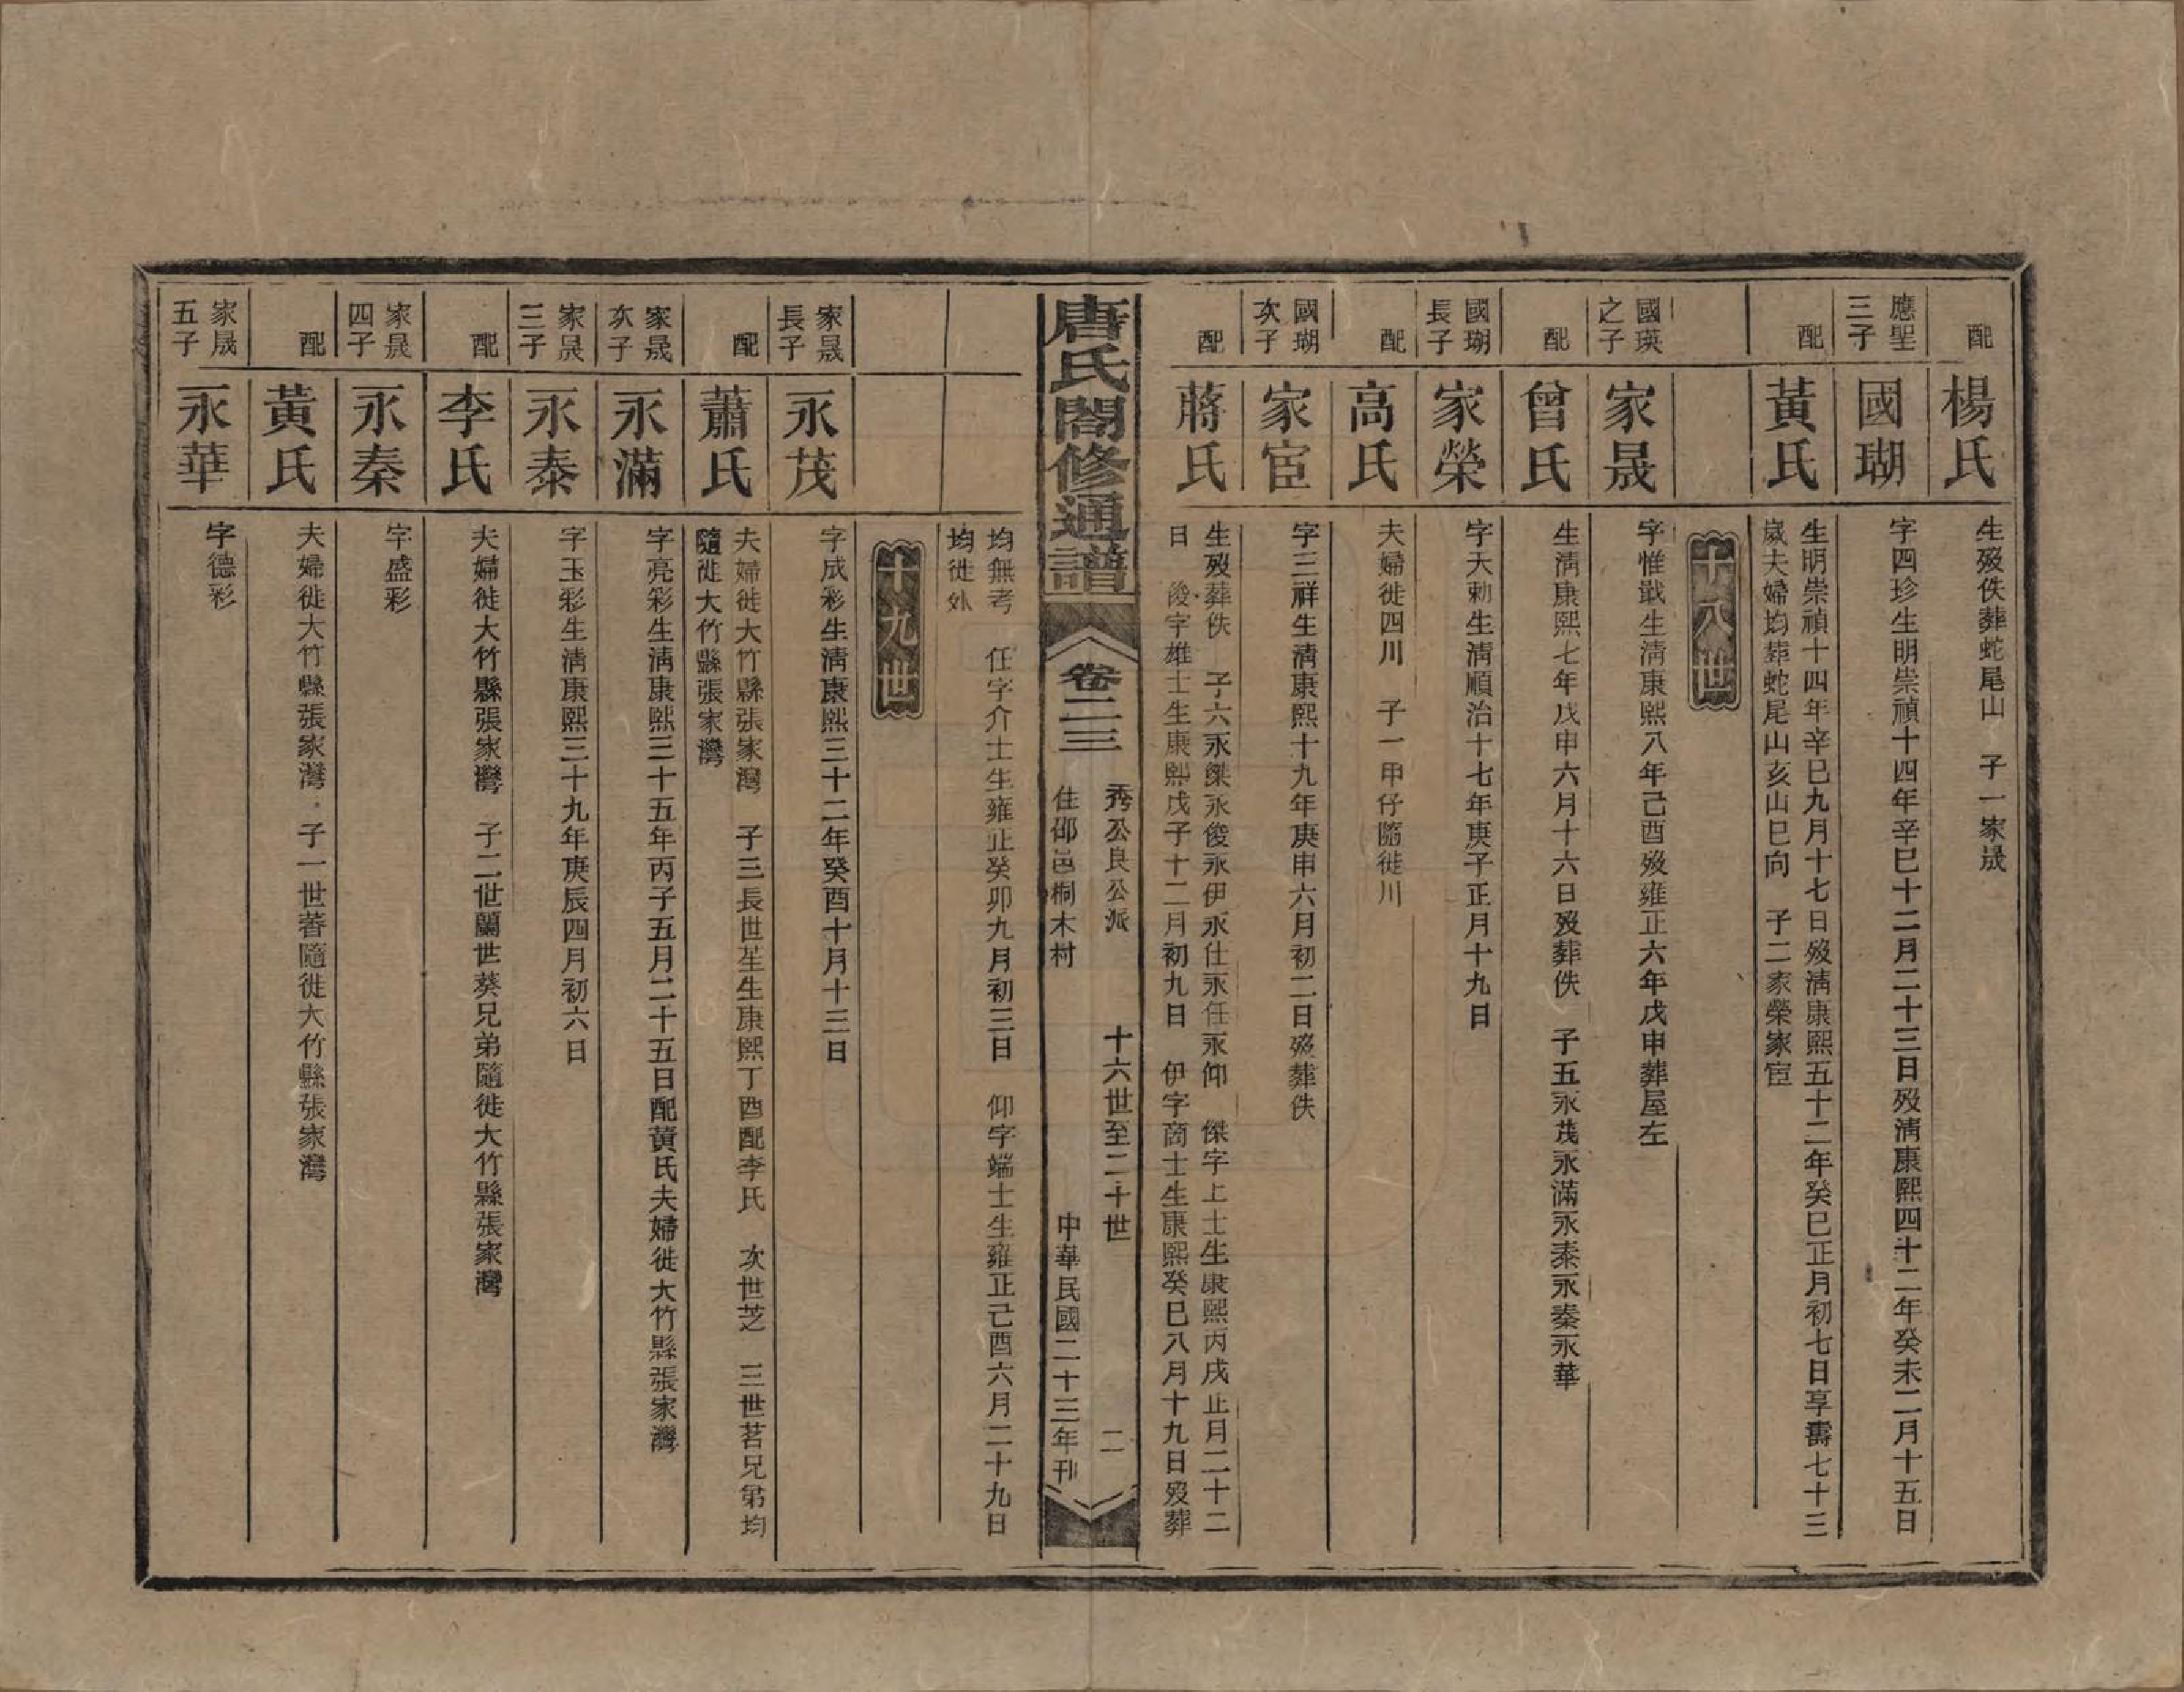 配
楊氏
生歿佚葬蛇尾山　子一家晟
應聖
三子
國瑚
字四珍生明崇禎十四年辛巳十二月二十三日歿清康熙四十二年癸未二月十五日
配
黃氏
生明崇禎十四年辛巳九月十七日歿清康熙五十二年癸巳正月初七日享壽七十三
歲夫婦均葬蛇尾山亥山巳向　子二家榮家宦
十八世
國瑛
之子
家晟
字惟戢生清康熙八年己酉歿雍正六年戊申葬屋左
配
曾氏
生清康熙七年戊申六月十六日歿葬佚　子五永茂永滿永泰永秦永華
國瑚
長子
家榮
字天勅生清順治十七年庚子正月十九日
配
高氏
夫婦徙四川　子一甲仔隨徙川
國瑚
次子
家宦
字三祥生清康熙十九年庚申六月初二日歿葬佚
配
蔣氏
生歿葬佚　子六永傑永俊永伊永仕永任永仰　傑字上士生康熙丙戌正月二十二
日　俊字雄士生康熙戊子十二月初九日　伊字商士生康熙癸巳八月十九日歿葬
唐氏閤修通譜
卷二三
秀公良公派
住邵邑桐木村
十六世至二十世
二
中華民國二十三年刊
均無考　任字介士生雍正癸卯九月初三日　仰字端士生雍正己酉六月二十九日
均徙外
十九世
家晟
長子
永茂
字成彩生清康熙三十二年癸酉十月十三日
配
蕭氏
夫婦徙大竹縣張家灣　子三長世苼生康熙丁酉配李氏　次世芝　三世茗兄弟均
隨徙大竹縣張家灣
家晟
次子
永滿
字亮彩生清康熙三十五年丙子五月二十五日配黃氏夫婦徙大竹縣張家灣
家晟
三子
永泰
字玉彩生清康熙三十九年庚辰四月初六日
配
李氏
夫婦徙大竹縣張家灣　子二世蘭世葵兄弟隨徙大竹縣張家灣
家晟
四子
永秦
字盛彩
配
黃氏
夫婦徙大竹縣張家灣　子一世蕃隨徙大竹縣張家灣
家晟
五子
永華
字德彩